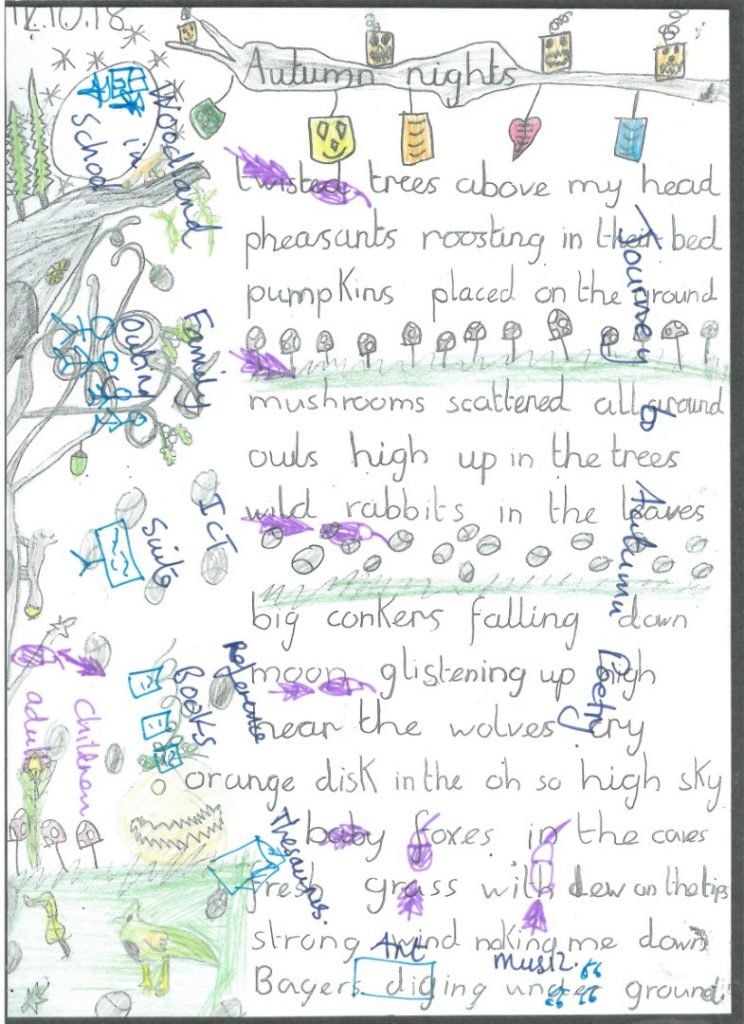 12.10.18
Autumn nights
twisted trees above my head
pheasants roosting in their bed
pumpkins placed on the ground
mushrooms scattered all around
owls high up in the trees
wild rabbits in the leaves
big conkers falling down
moon glistening up high
hear the wolves cry
orange disk in the oh so high sky
baby foxes in the caves
fresh grass with dew on the tips
strong wind noking me down
Bagers diging under ground.
Woodland
in
school
Family
Outing
ICT
Suite
Reference
Books
Thesaurus.
children
adult
Journey to Autumn Poetry
Art
Music.